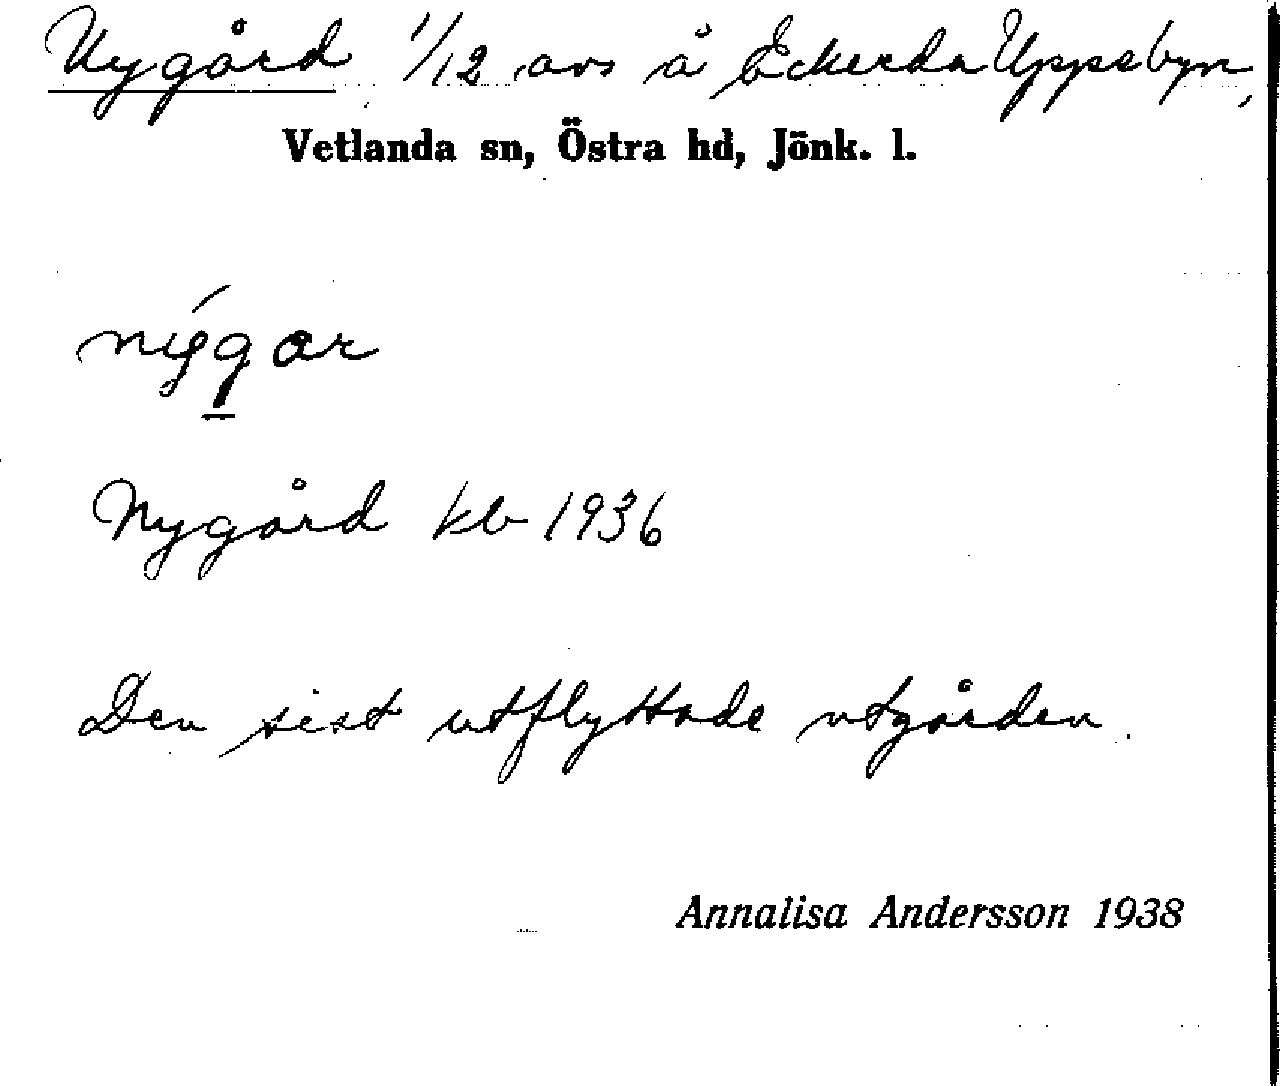 Nygård 1/12 avs å Eckerda Uppsbyn,
Vetlanda sn, Östra hd, Jönk. l.
Nygård kb 1936
Den sist utflyttade utgården.
Annalisa Andersson 1938